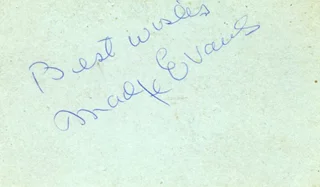 Best wishes
Madge Evans